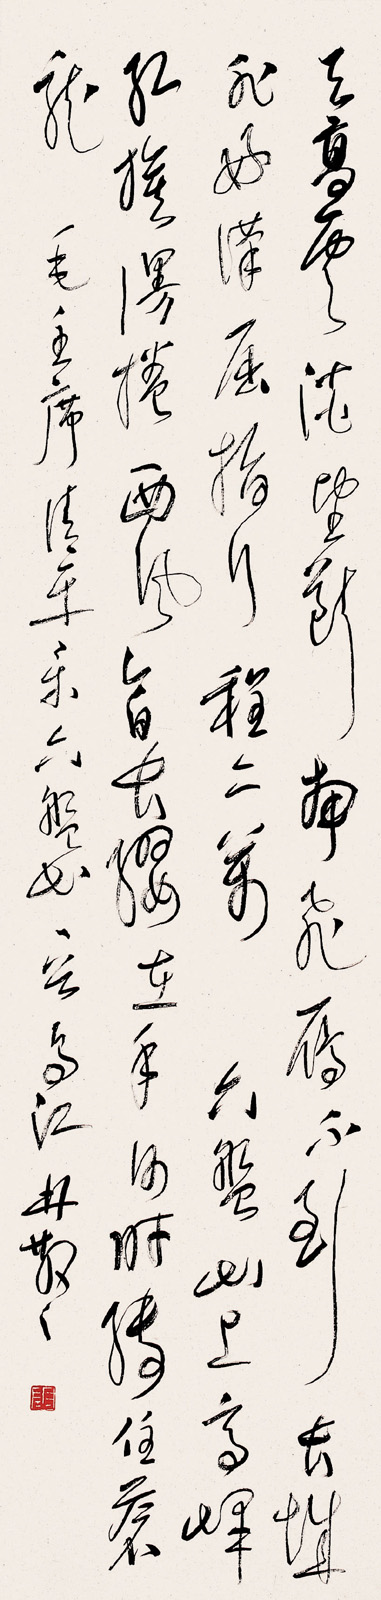 天高雲淡望斷南飛雁不到長城
非好漢屈指行程二萬六盤山上高峰
紅旗漫捲西風今日長纓在手何時縛住蒼
龍毛主席清平樂六盤山烏江林散之